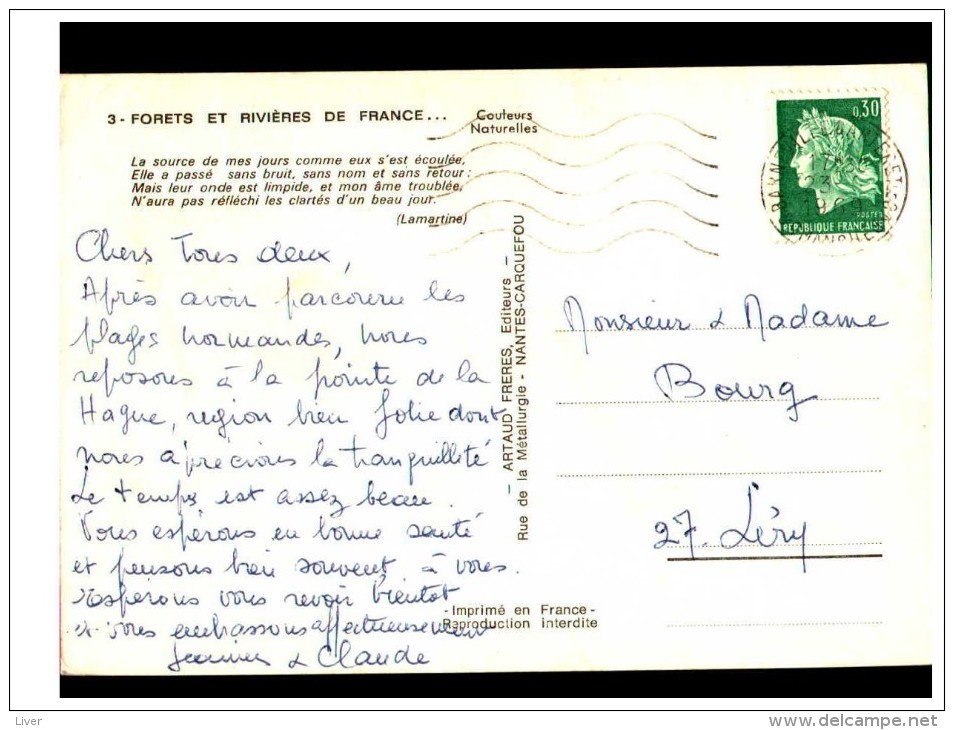 3 - FORETS ET RIVIÈRES DE FRANCE...
Couleurs
Naturelles
La source de mes jours comme eux s'est écoulée,
Elle a passé sans bruit, sans nom et sans retour :
Mais leur onde est limpide, et mon âme troublée,
N'aura pas réfléchi les clartés d'un beau jour.
(Lamartine)
0,30
POSTES
REPUBLIQUE FRANÇAISE
1969
Chers tous deux,
Après avoir parcouru les
plages normandes, nous
reposons à la pointe de la
Hague, region bien jolie dont
nous aprecions la tranquillité
Le temps est assez beau.
Vous espérons en bonne santé
et pensons bien souvent à vous.
Espérons vous revoir bientot
et vous embrassons affectueusement
& Claude
— ARTAUD FRERES, Editeurs —
Rue de la Métallurgie - NANTES-CARQUEFOU
Monsieur & Madame
Bourg
27. Léry
-Imprimé en France-
Reproduction interdite
Liver
www.delcampe.net